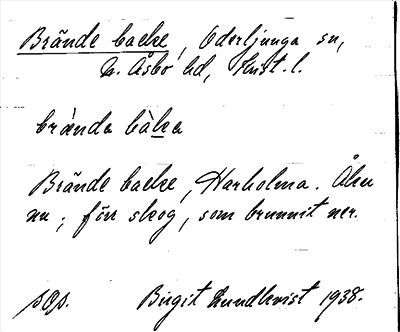 Brände backe, Oderljunga sn,
N. Åsbo hd, Krist. l.
brǽnda bàka
Brände backe, Harholma. Åker
nu; förr skog, som brunnit ner.
sOp. Birgit Lundkvist 1938.